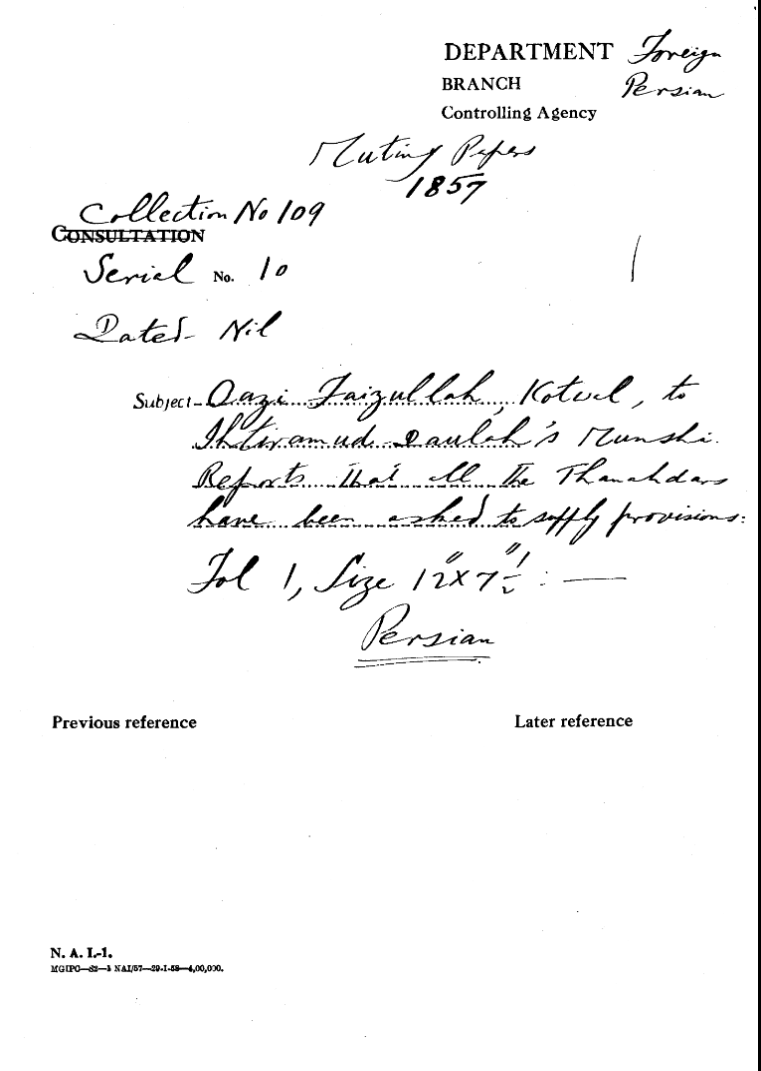 DEPARTMENT Foreign
BRANCH Persian
Controlling Agency
Mutiny Papers
1857
Collection No 109
CONSULTATION
Serial No. 10
Dated- Nil
Subject- Qazi Faizullah, Kotwal, to
Ihtiramud Daulah's Munshi.
Reports that all the Thanahdars
have been asked to supply provisions:
Fol 1, Size 12"x7½" : —
Persian
Previous reference Later reference
N. A. I.-1.
MGIPC—S3—1 NAI/57—29-1-58—4,00,000.